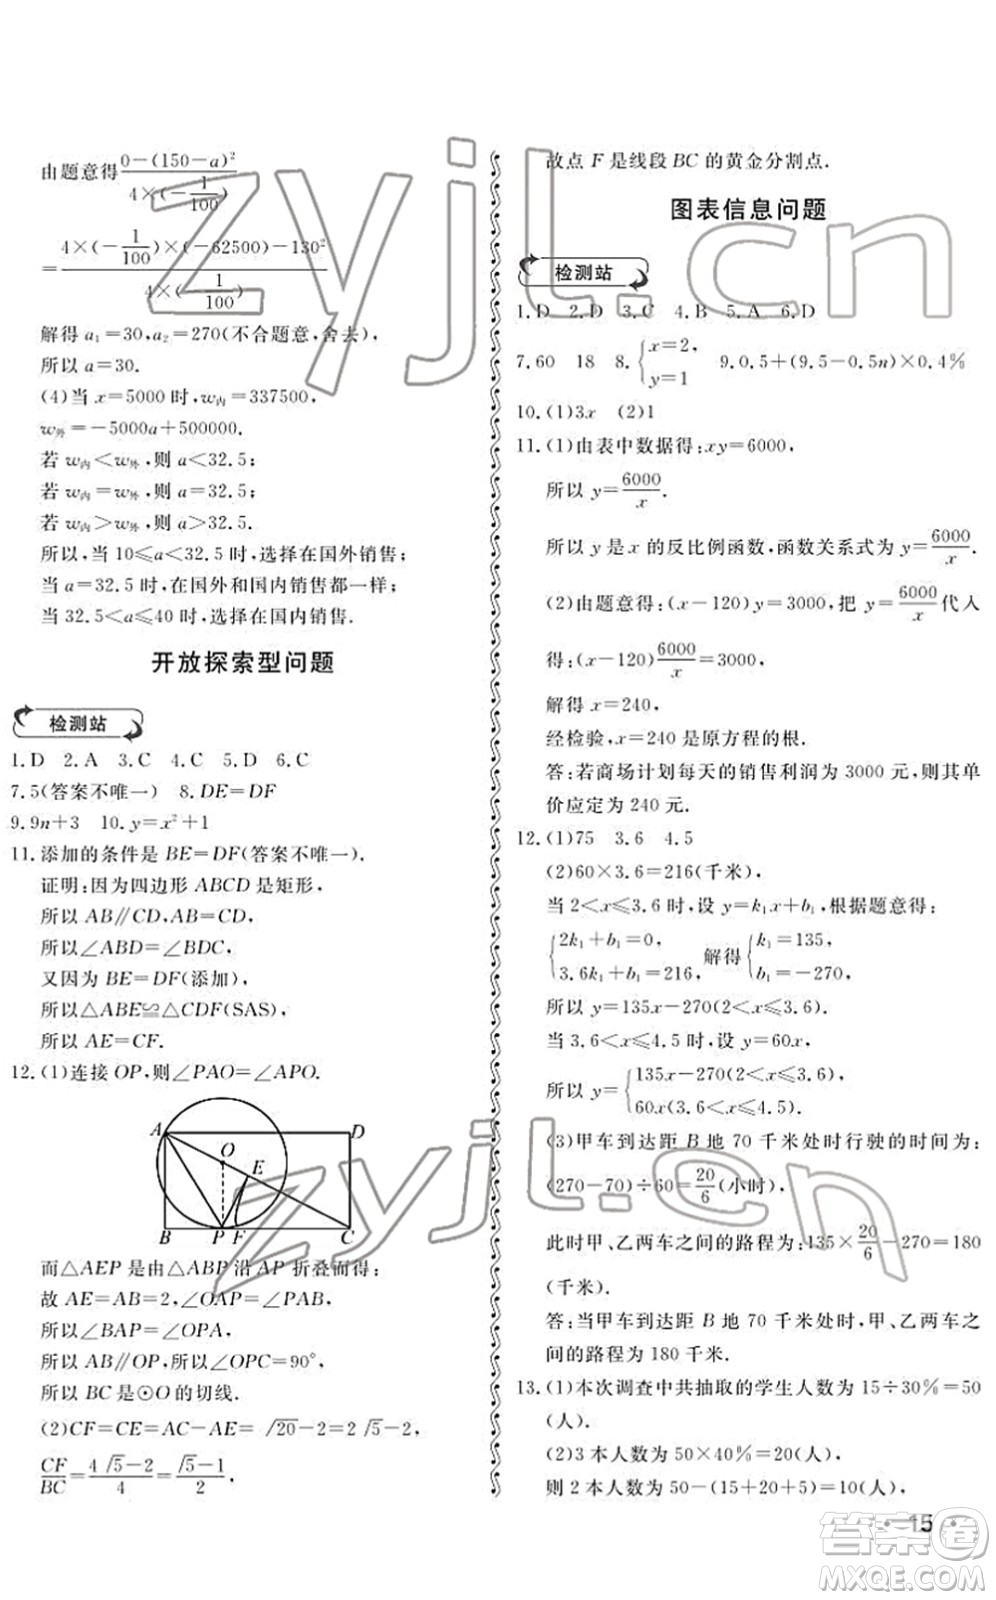 由题意得 $\frac{0-(150-a)^2}{4×(-\frac{1}{100})}$
= $\frac{4×(-\frac{1}{100})×(-62500)-130^2}{4×(-\frac{1}{100})}$
解得 a₁=30, a₂=270(不合题意,舍去).
所以 a=30.
(4)当 x=5000 时, w内=337500,
w外=-5000a+500000.
若 w内<w外,则 a<32.5;
若 w内=w外,则 a=32.5;
若 w内>w外,则 a>32.5.
所以,当 10≤a<32.5 时,选择在国外销售;
当 a=32.5 时,在国外和国内销售都一样;
当 32.5<a≤40 时,选择在国内销售.
开放探索型问题
检测站
1.D 2.A 3.C 4.C 5.D 6.C
7.5(答案不唯一) 8.DE=DF
9.9n+3 10.y=x²+1
11.添加的条件是 BE=DF(答案不唯一).
证明:因为四边形 ABCD 是矩形,
所以 AB∥CD, AB=CD,
所以∠ABD=∠BDC,
又因为 BE=DF(添加),
所以△ABE≌△CDF(SAS),
所以 AE=CF.
12.(1)连接 OP,则∠PAO=∠APO.
A D
O
E
B P F C
而△AEP 是由△ABP 沿 AP 折叠而得:
故 AE=AB=2,∠OAP=∠PAB,
所以∠BAP=∠OPA,
所以 AB∥OP,所以∠OPC=90°,
所以 BC 是⊙O 的切线.
(2)CF=CE=AC-AE=√20-2=2√5-2,
$\frac{CF}{BC}=\frac{4\sqrt{5}-2}{4}=\frac{\sqrt{5}-1}{2}$.
故点 F 是线段 BC 的黄金分割点.
图表信息问题
检测站
1.D 2.D 3.C 4.B 5.A 6.D
7.60 18 8.{x=2, y=1 9.0.5+(9.5-0.5n)×0.4%
10.(1)3x (2)1
11.(1)由表中数据得:xy=6000,
所以 y=$\frac{6000}{x}$.
所以 y 是 x 的反比例函数,函数关系式为 y=$\frac{6000}{x}$.
(2)由题意得:(x-120)y=3000,把 y=$\frac{6000}{x}$代入
得:(x-120)$\frac{6000}{x}$=3000,
解得 x=240,
经检验,x=240 是原方程的根.
答:若商场计划每天的销售利润为 3000 元,则其单
价应定为 240 元.
12.(1)75 3.6 4.5
(2)60×3.6=216(千米),
当 2<x≤3.6 时,设 y=k₁x+b₁,根据题意得:
{2k₁+b₁=0, 3.6k₁+b₁=216, 解得{k₁=135, b₁=-270,
所以 y=135x-270(2<x≤3.6).
当 3.6<x≤4.5 时,设 y=60x,
所以 y={135x-270(2<x≤3.6) 60x(3.6<x≤4.5).
(3)甲车到达距 B 地 70 千米处时行驶的时间为:
(270-70)÷60=$\frac{20}{6}$(小时),
此时甲、乙两车之间的路程为:135×$\frac{20}{6}$-270=180
(千米).
答:当甲车到达距 B 地 70 千米处时,甲、乙两车之
间的路程为 180 千米.
13.(1)本次调查中共抽取的学生人数为 15÷30%=50
(人).
(2)3 本人数为 50×40%=20(人),
则 2 本人数为 50-(15+20+5)=10(人),
15
zyjl.cn
zyjl.cn
答案圈
MXQE.COM